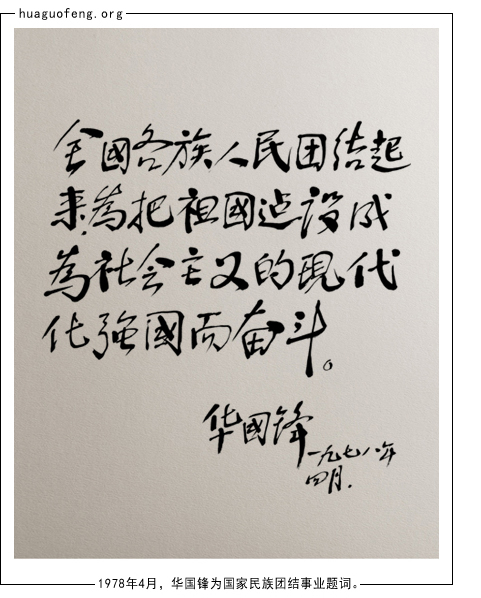 huaguofeng.org
全國各族人民团结起
来，為把祖國建設成
為社会主义的現代
化強國而奋斗。
华國锋
一九七八年
四月.
1978年4月，华国锋为国家民族团结事业题词。